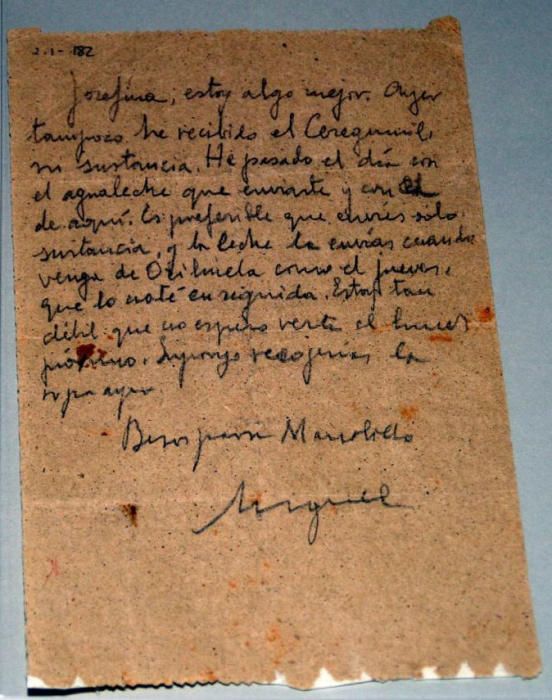 2.1-182
Josefina, estoy algo mejor. Ayer
tampoco he recibido el Ceregumil,
ni sustancia. He pasado el día con
el agualeche que enviaste y con el
de aquí. Es preferible que envíes sólo
sustancia, y la leche la envías cuando
venga de Orihuela como el jueves,
que lo noté en seguida. Estoy tan
débil que no espero verte el lunes
próximo. Supongo recogerías la
ropa ayer.
Besos para Manolillo
Miguel